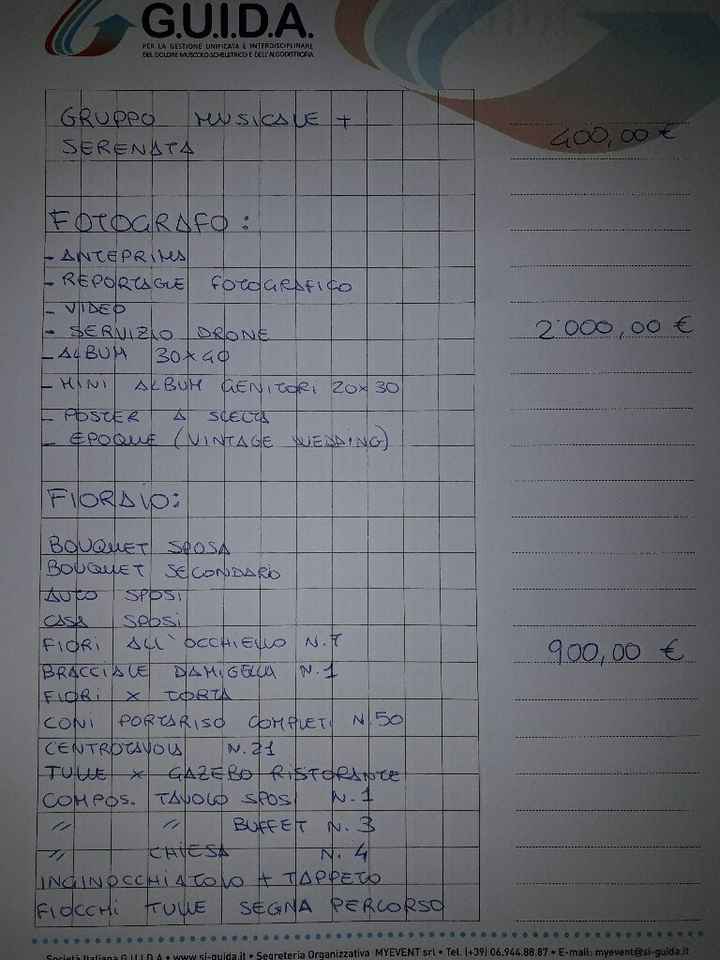 G.U.I.D.A.
PER LA GESTIONE UNIFICATA E INTERDISCIPLINARE
DEL DOLORE MUSCOLO-SCHELETRICO E DELL'ALGODISTROFIA
GRUPPO MUSICALE +
400,00 €
SERENATA
FOTOGRAFO:
- ANTEPRIMA
- REPORTAGE FOTOGRAFICO
- VIDEO
- SERVIZIO DRONE
2.000,00 €
- ALBUM 30x40
- MINI ALBUM GENITORI 20x30
- POSTER A SCELTA
- EPOQUE (VINTAGE WEDDING)
FIORAIO:
BOUQUET SPOSA
BOUQUET SECONDARIO
AUTO SPOSI
CASA SPOSI
FIORI ALL'OCCHIELLO N.7
900,00 €
BRACCIALE DAMIGELLA N.1
FIORI x TORTA
CONI PORTARISO COMPLETI N.50
CENTROTAVOLA N.21
TULLE x GAZEBO RISTORANTE
COMPOS. TAVOLO SPOSI N.1
〃 〃 BUFFET N.3
〃 CHIESA N.4
INGINOCCHIATOIO + TAPPETO
FIOCCHI TULLE SEGNA PERCORSO
Società Italiana G.U.I.D.A • www.si-guida.it • Segreteria Organizzativa MYEVENT srl • Tel. (+39) 06.944.88.87 • E-mail: myevent@si-guida.it